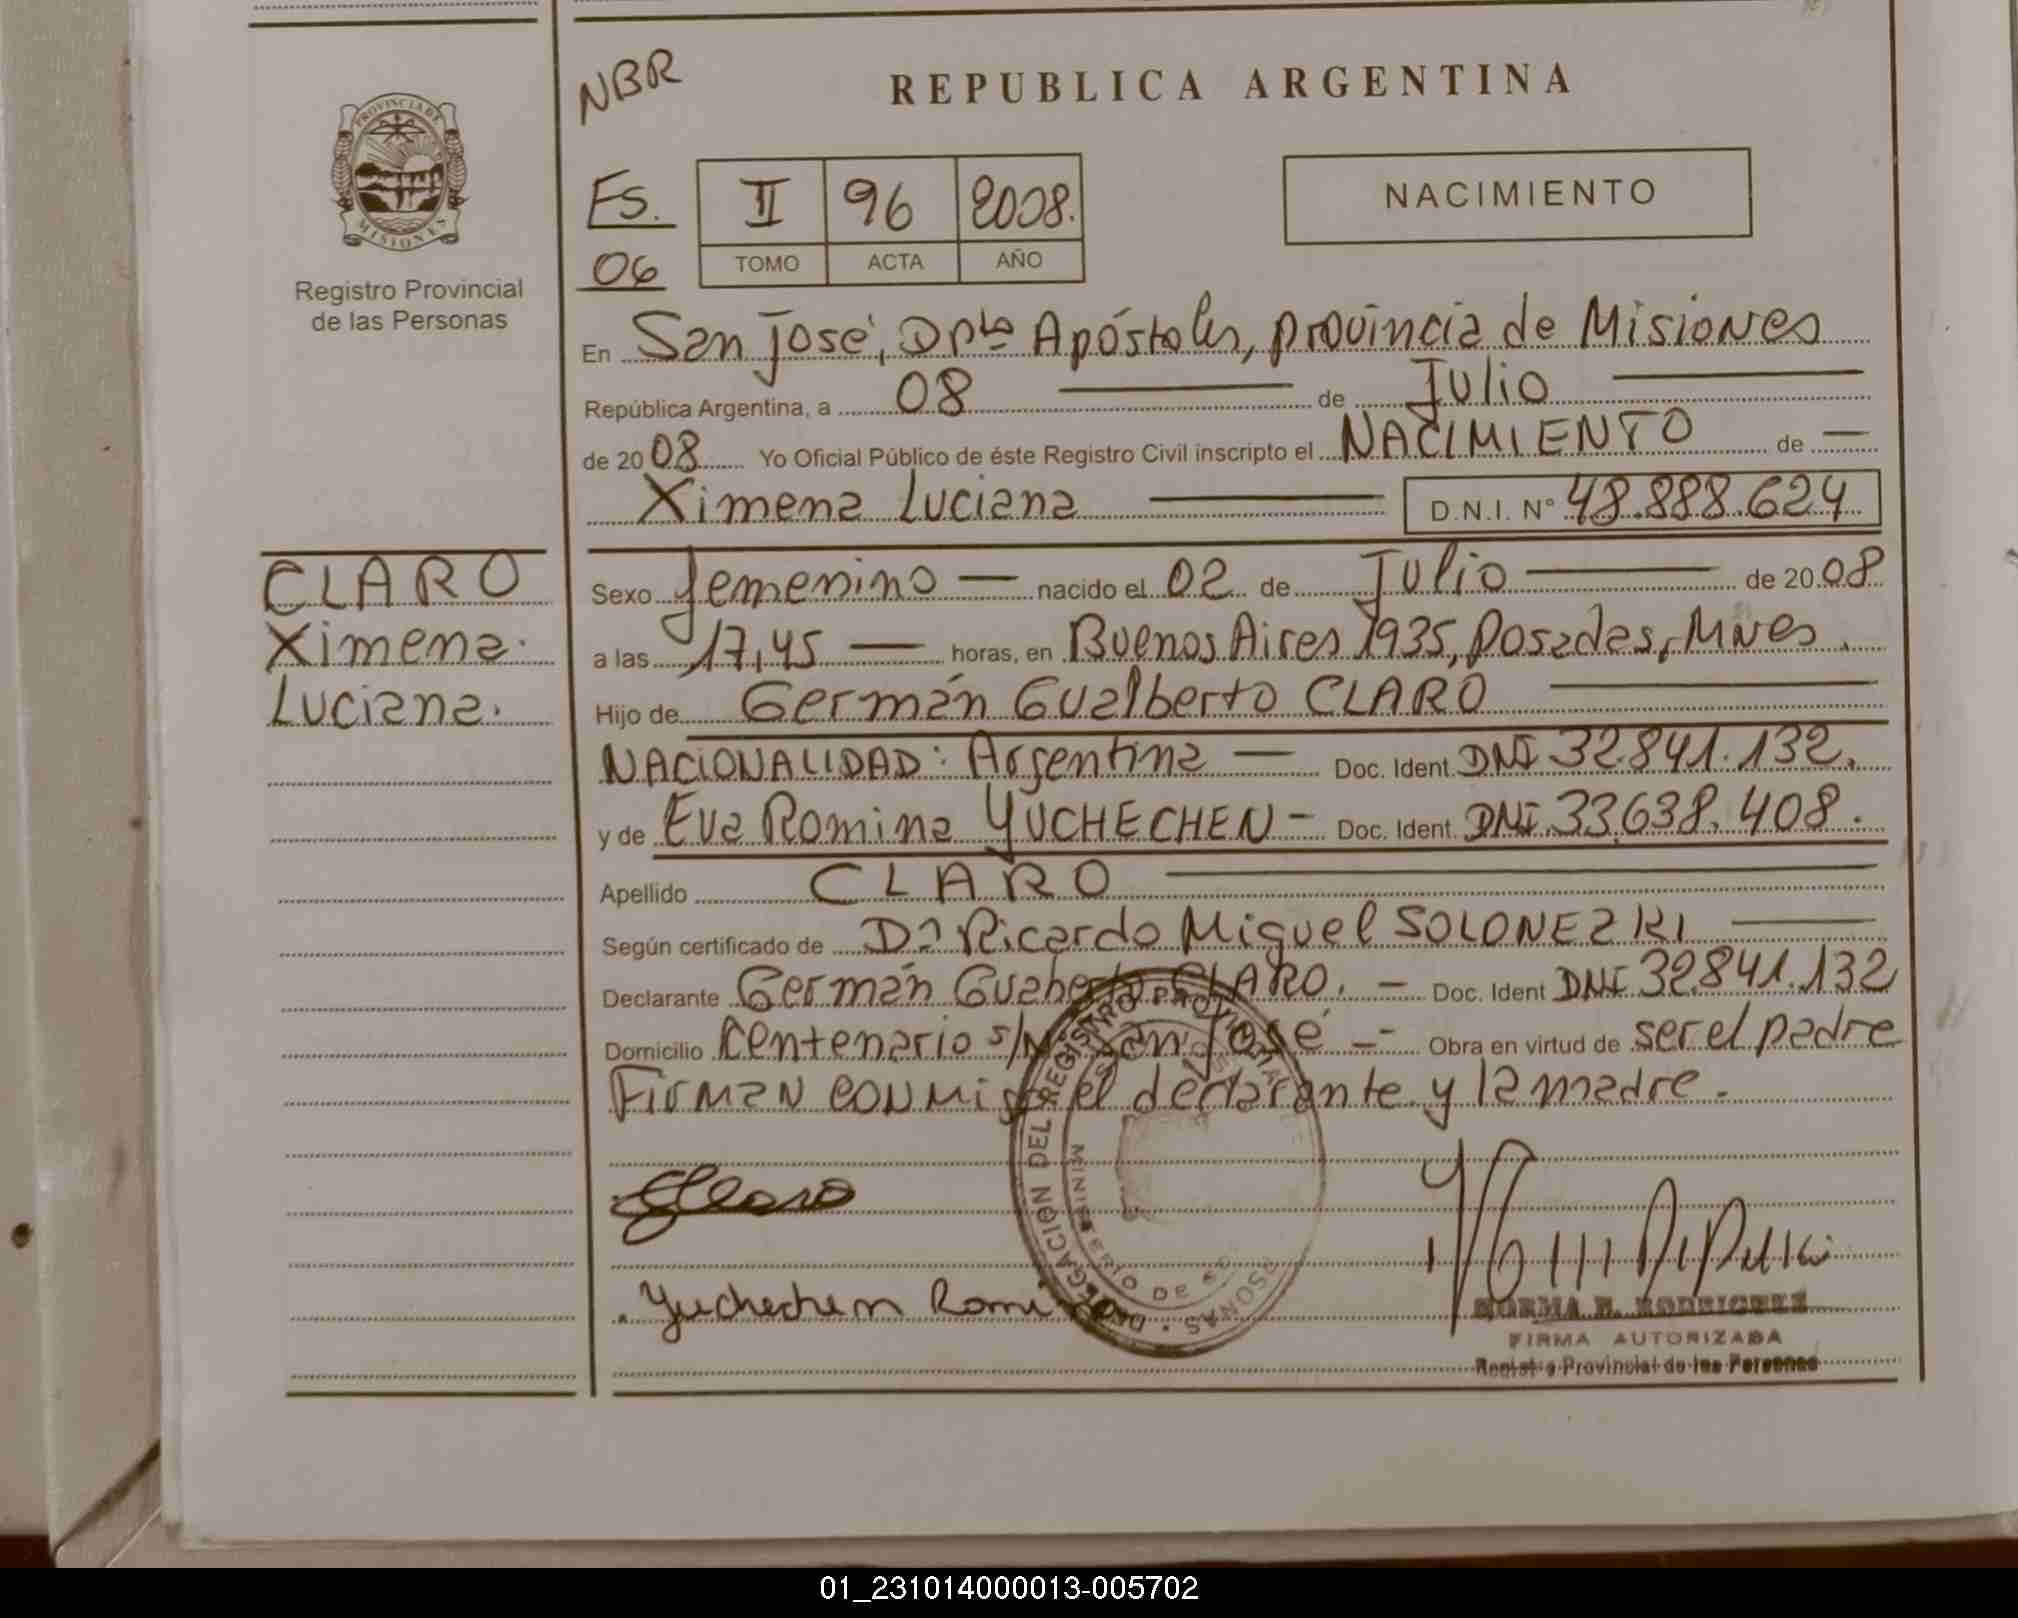 NBR
REPUBLICA ARGENTINA
PROVINCIA DE
MISIONES
Registro Provincial
de las Personas
Es.
06
II 96 2008.
TOMO ACTA AÑO
NACIMIENTO
En San José, Dpto Apóstoles, provincia de Misiones
República Argentina, a 08 de Julio
de 2008 Yo Oficial Público de éste Registro Civil inscripto el NACIMIENTO de
Ximena Luciana D.N.I. N° 48.888.624
CLARO
Ximena.
Luciana.
Sexo femenino nacido el 02 de Julio de 2008
a las 17,45 horas, en Buenos Aires 1935, Posadas, Mnes.
Hijo de Germán Gualberto CLARO
NACIONALIDAD: Argentina Doc. Ident. DNI 32.841.132.
y de Eva Romina YUCHECHEN - Doc. Ident. DNI. 33.638.408.
Apellido CLARO
Según certificado de Dr Ricardo Miguel SOLONEZKI
Declarante Germán Guaberto CLARO. - Doc. Ident DNI 32.841.132
Domicilio Centenario s/N San José - Obra en virtud de ser el padre
Firman conmigo el declarante y la madre.
DELEGACION DEL REGISTRO PROVINCIAL
MINISTERIO DE
Claro
Yuchechen Romina
NORMA B. RODRIGUEZ
FIRMA AUTORIZADA
Registro Provincial de las Personas
01_231014000013-005702